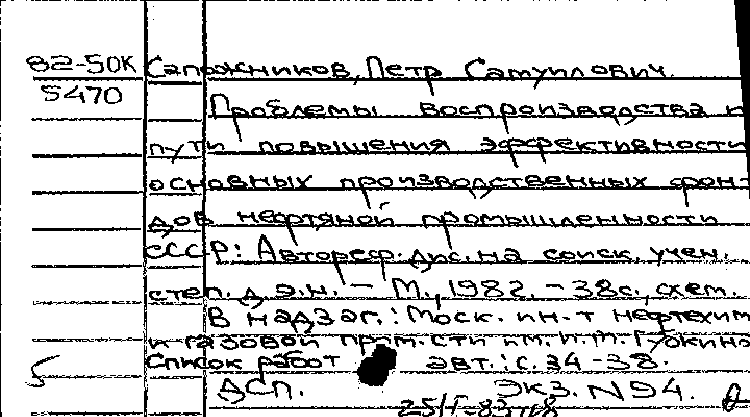 82-50К Сапожников, Петр Самуилович.
5470
Проблемы воспроизводства и
пути повышения эффективности
основных производственных фон-
дов нефтяной промышленности
СССР: Автореф. дис. на соиск. учен.
степ. д.э.н. – М., 1982. – 38с., схем.
В надзаг.: Моск. ин-т нефтехим
и газовой пром-сти им. И.М. Губкина
Список работ авт.: с. 34-38.
5
ДСП. Экз. N94.